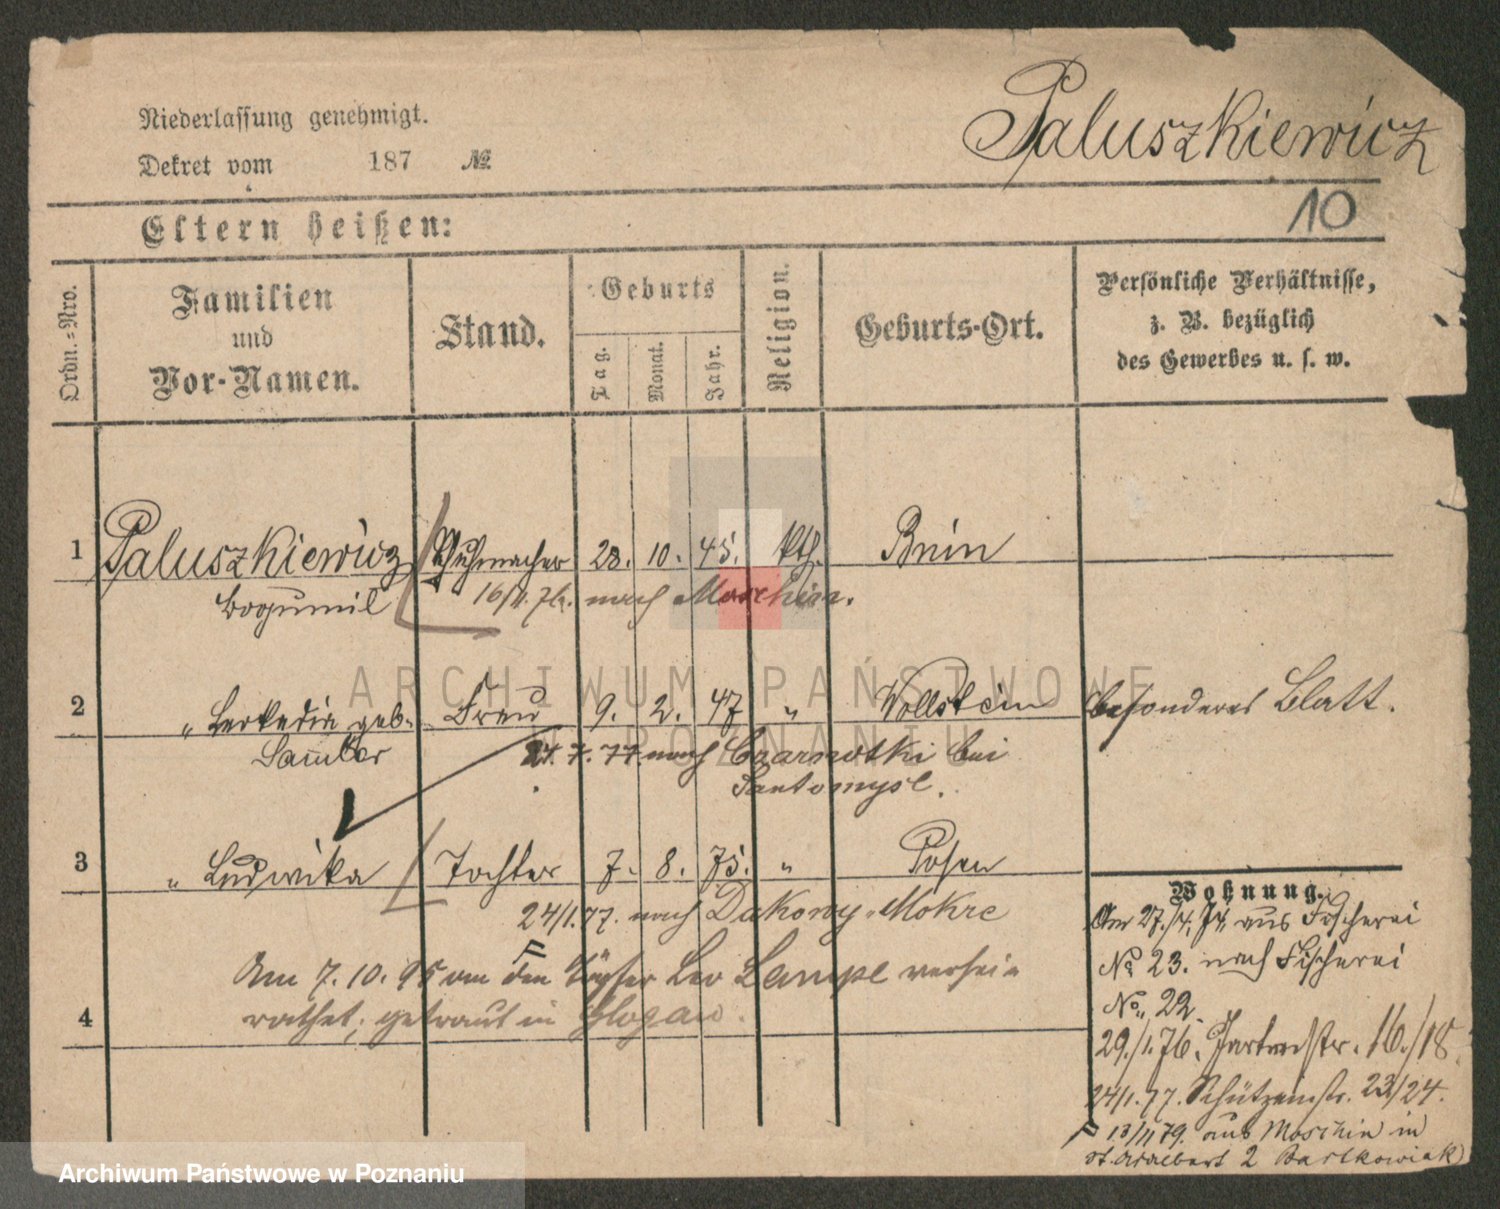 Niederlassung genehmigt.
Dekret vom 187 №
Paluszkiewicz
10
Eltern heißen:
Ordn.-Nro.
Familien und Vor-Namen.
Stand.
Geburts
Tag. Monat. Jahr.
Religion.
Geburts-Ort.
Persönliche Verhältnisse,
z. B. bezüglich
des Gewerbes u. s. w.
1 Paluszkiewicz Schuhmacher 28. 10. 45. kth. Bnin
Bogumil nach Moschin.
2 " Leokadia geb. Frau 9. 2. 47 " Wollstein besonderes Blatt.
24.7.77 nach Czarnotki bei
Santomysl.
3 " Ludwika Tochter 7. 8. 75. " Posen
24/1.77. nach Dakowy-Mokre
Am 7.10.95 an den Töpfer Leo Lampe verhei-
4 rathet; getraut in Glogau.
Wohnung.
Am 27./4. 74. aus Fischerei
No 23. nach Fischerei
No. 22.
29./1.76. 16./18
24/1.77. Schützenstr. 23/24.
13/11 79. aus Moschin in
St. Adalbert 2 Bartkowiak)
ARCHIWUM PAŃSTWOWE
W POZNANIU
Archiwum Państwowe w Poznaniu